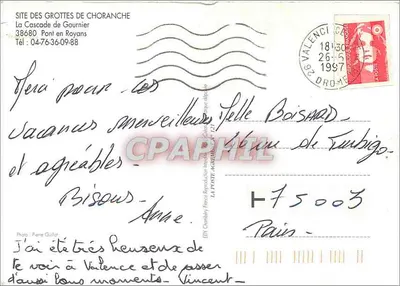 SITE DES GROTTES DE CHORANCHE
La Cascade de Gournier
38680 Pont en Royans
Tél : 04-76-36-09-88
26 VALENCE
18-30
26-5
1997
DROME
Merci pour ces
vacances merveilleuses
et agréables.
Bisous.
Anne.
Melle BOISHARD
46 rue de Turbigo
75003
Paris
CPAPHIL
Photo : Pierre Guillot
J'ai été très heureux de
te voir à Valence et de passer
d'aussi bons moments. Vincent